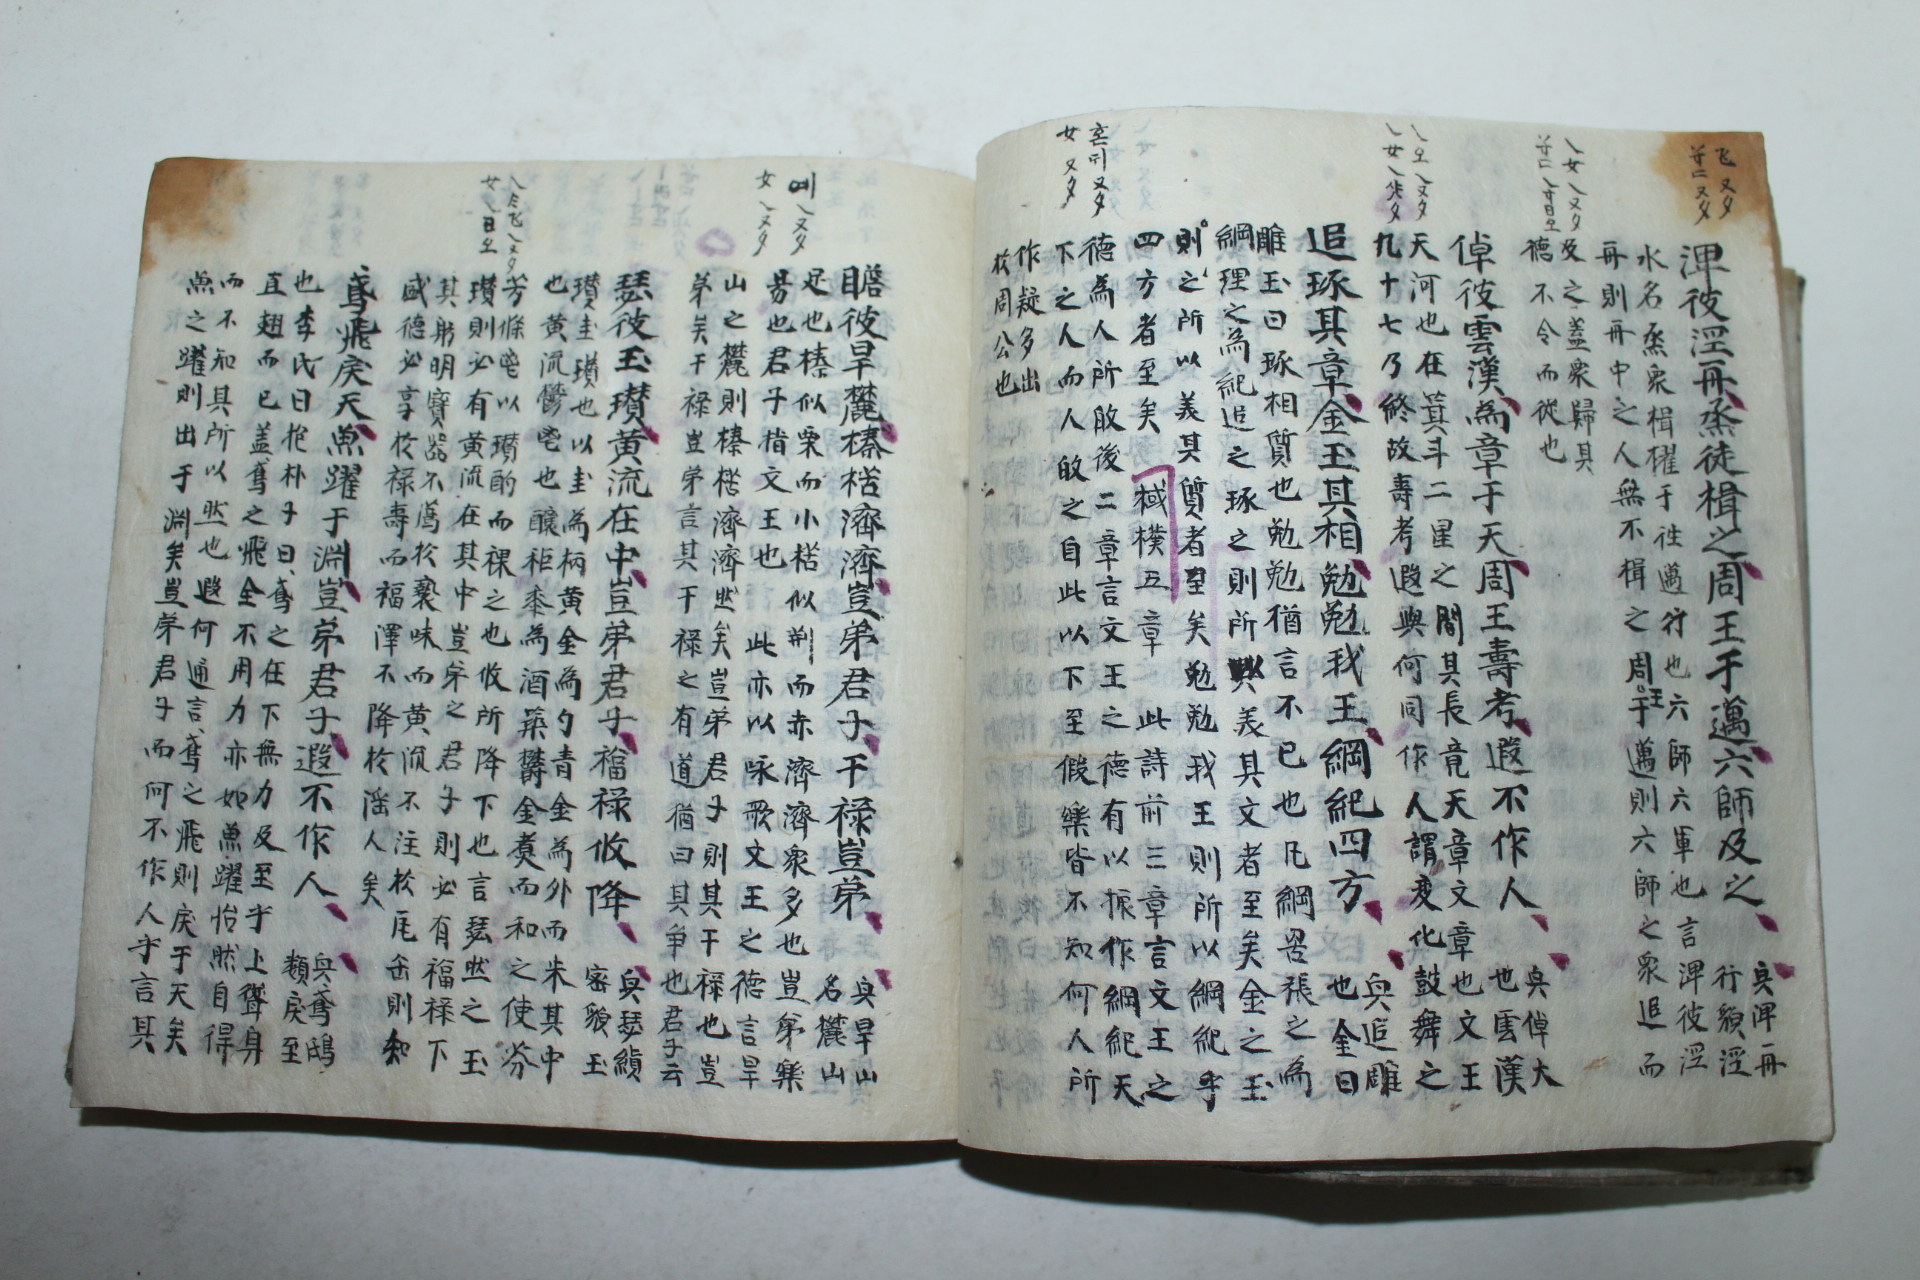 淠彼涇舟烝徒楫之周王于邁六師及之
興淠舟
行貌涇
水名烝衆楫櫂于徃邁行也六師六軍也言淠彼涇
舟則舟中之人無不楫之周王于邁則六師之衆追而
及之盖衆歸其
德不令而從也
倬彼雲漢為章于天周王壽考遐不作人
興倬大
也雲漢
天河也在箕斗二星之間其長竟天章文章也文王
九十七乃終故壽考遐與何同作人謂変化鼓舞之
追琢其章金玉其相勉勉我王綱紀四方
興追雕
也金曰
雕玉曰琢相質也勉勉猶言不已也凡綱罟張之為
綱理之為紀追之琢之則所以義其文者至矣金之玉
則之所以義其質者至矣勉勉我王則所以綱紀乎
四方者至矣 棫樸五章 此詩前三章言文王之
德為人所敀後二章言文王之德有以振作綱紀天
下之人而人敀之自此以下至假樂皆不知何人所
作疑多出
於周公也
瞻彼旱麓榛楛濟濟豈弟君子干禄豈弟
興旱山
名麓山
足也榛似栗而小楛似荆而赤濟濟衆多也豈弟樂
易也君子指文王也 此亦以咏歌文王之德言旱
山之麓則榛楛濟濟然矣豈弟君子則其干禄也豈
弟矣干禄豈弟言其干禄之有道猶曰其争也君子云
瑟彼玉瓚黄流在中豈弟君子福禄攸降
興瑟縝
密貌玉
瓚圭瓚也以圭為柄黄金為勺青金為外而朱其中
也黄流鬱鬯也釀秬黍為酒築欝金煑而和之使芬
芳條鬯以瓚酌而祼之也攸所降下也言瑟然之玉
瓚則必有黄流在其中豈弟之君子則必有福禄下
其躬明寳器不薦於褻味而黄流不注於瓦缶則知
盛德必享於禄壽而福澤不降於滛人矣
鳶飛戾天魚躍于淵豈弟君子遐不作人
興鳶鴟
類戾至
也李氏曰抱朴子曰鳶之在下無力及至乎上聳身
直翅而已盖鳶之飛全不用力亦如魚躍怡然自得
而不知其所以然也遐何通言鳶之飛則戾于天矣
魚之躍則出于淵矣豈弟君子而何不作人乎言其